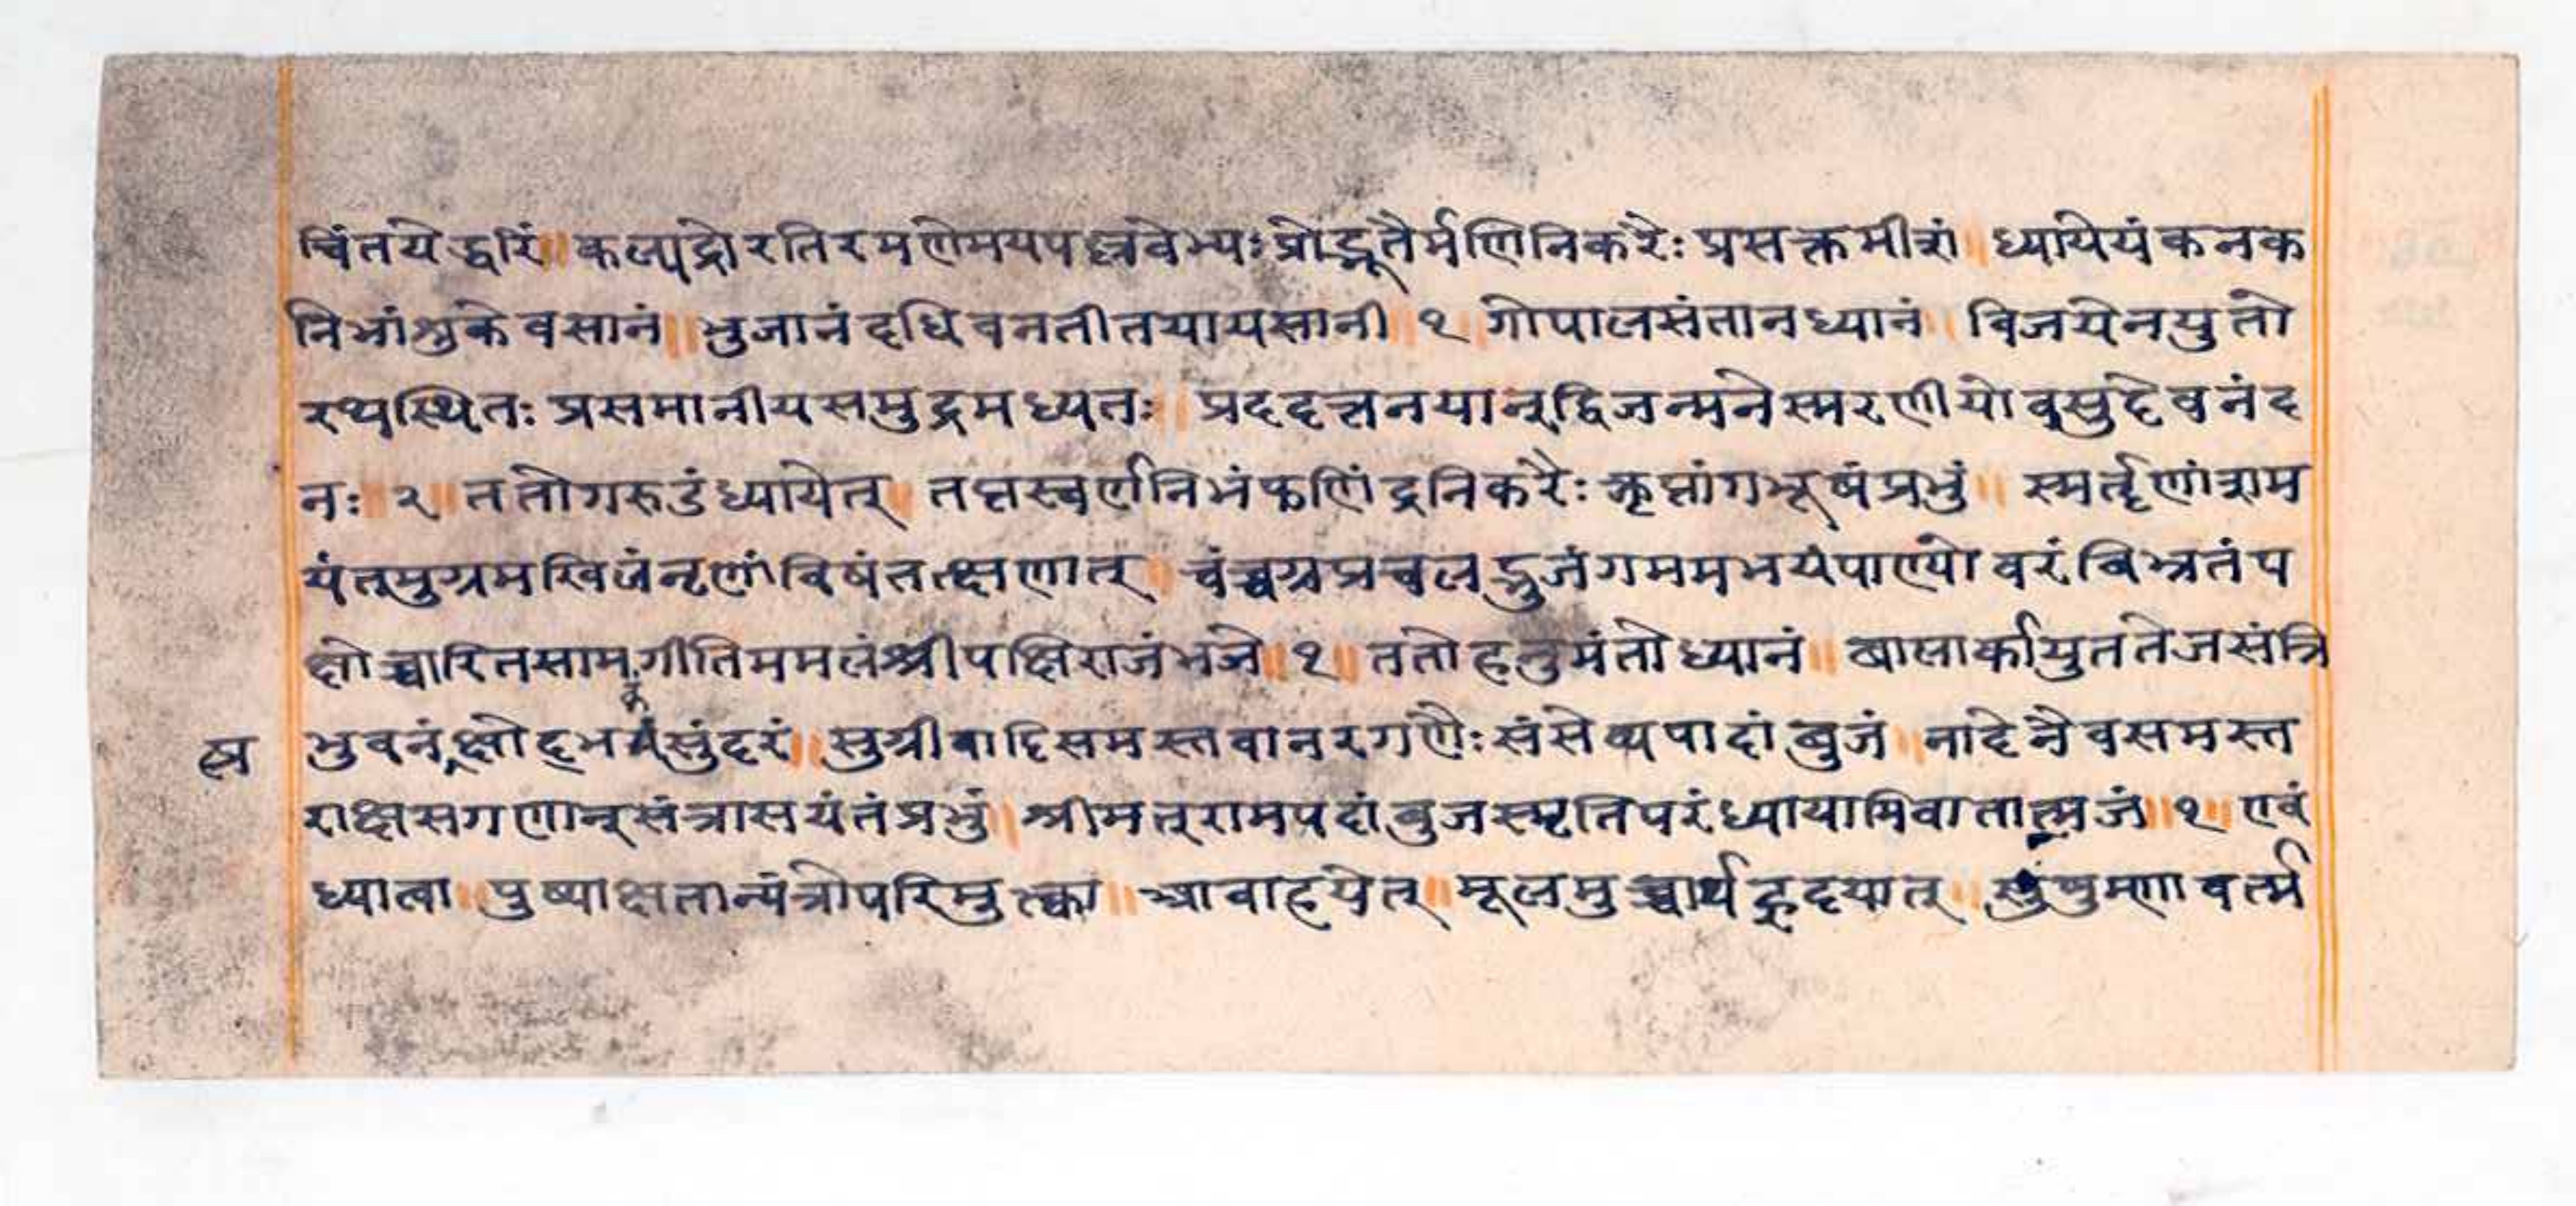 चिंतयेद्धरिं॥ कल्पद्रोरतिरमणेमयपल्लवेभ्यः प्रोद्भूतैर्मणिनिकरैः प्रसक्तमीशं॥ ध्यायेयं कनक
निभांशुके वसानं॥ भुजानं दधिवनतीतयायसानी॥ १॥ गोपालसंतानध्यानं॥ विजयेनयुतो
रथस्थितः प्रसमानीयसमुद्रमध्यतः॥ प्रददत्तनयान्द्विजन्मने स्मरणीयो वसुदेवनंद
नः॥ २॥ ततो गरुडं ध्यायेत्॥ तप्तस्वर्णनिभं फणिंद्रनिकरैः कॢप्तांगभूषं प्रभुं॥ स्मर्तॄणांत्राम
यंतमुग्रमखिलंनृणांविषंतत्क्षणात्॥ चंच्वग्रप्रचलद्भुजंगममभयंपाण्योर्वरं विभ्रतंप
क्षोच्चारितसामगीतिममलंश्रीपक्षिराजंभजे॥ १॥ ततो हनुमंतो ध्यानं॥ बालार्कायुततेजसंत्रि
त्र भुवनंक्षोदभकंसुंदरं॥ सुग्रीवादिसमस्तवानरगणैः संसेव्यपादांबुजं॥ नादेनैवसमस्त
राक्षसगणान्संत्रासयंतंप्रभुं॥ श्रीमत्रामपदांबुजस्मृतिपरंध्यायामिवातात्मजं॥ १॥ एवं
ध्यात्वा॥ पुष्पाक्षतान्यंत्रोपरिमुत्क्वा॥ आवाहयेत्॥ मूलमुच्चार्यहृदयात्॥ सुंषुम्णावर्त्म